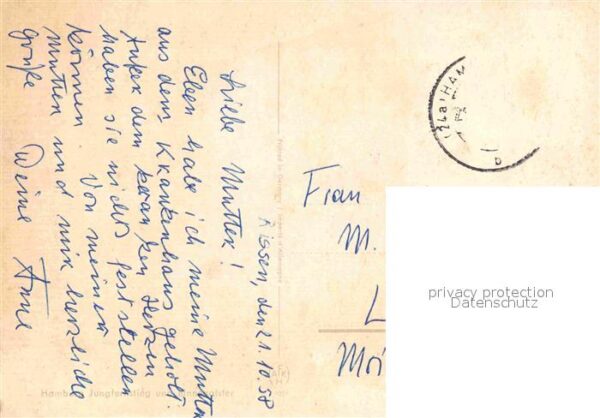 Rissen, den 21.10.58
Liebe Mutter!
Eben habe ich meine Mutter
aus dem Krankenhaus geholt.
Außer dem kranken Herzen
haben sie nichts feststellen
können. Von meiner
Mutter und mir herzliche
Grüße Deine Anne
Frau
M.
L
Mö
privacy protection
Datenschutz
Hamburg, Jungfernstieg und Binnenalster